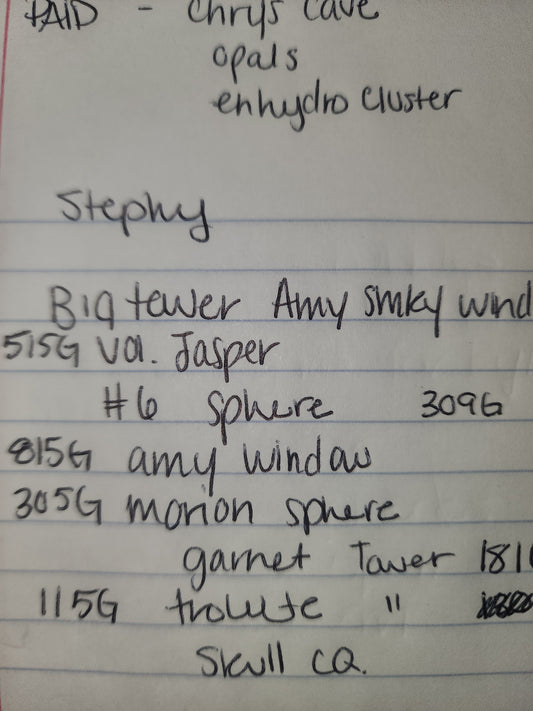 PAID - Chrys Cave
opals
enhydro cluster
Stephy
Big tower Amy smky wind
515G Va. Jasper
#6 sphere 309G
815G amy window
305G morion sphere
garnet Tower 181
115G "
Skull CQ.